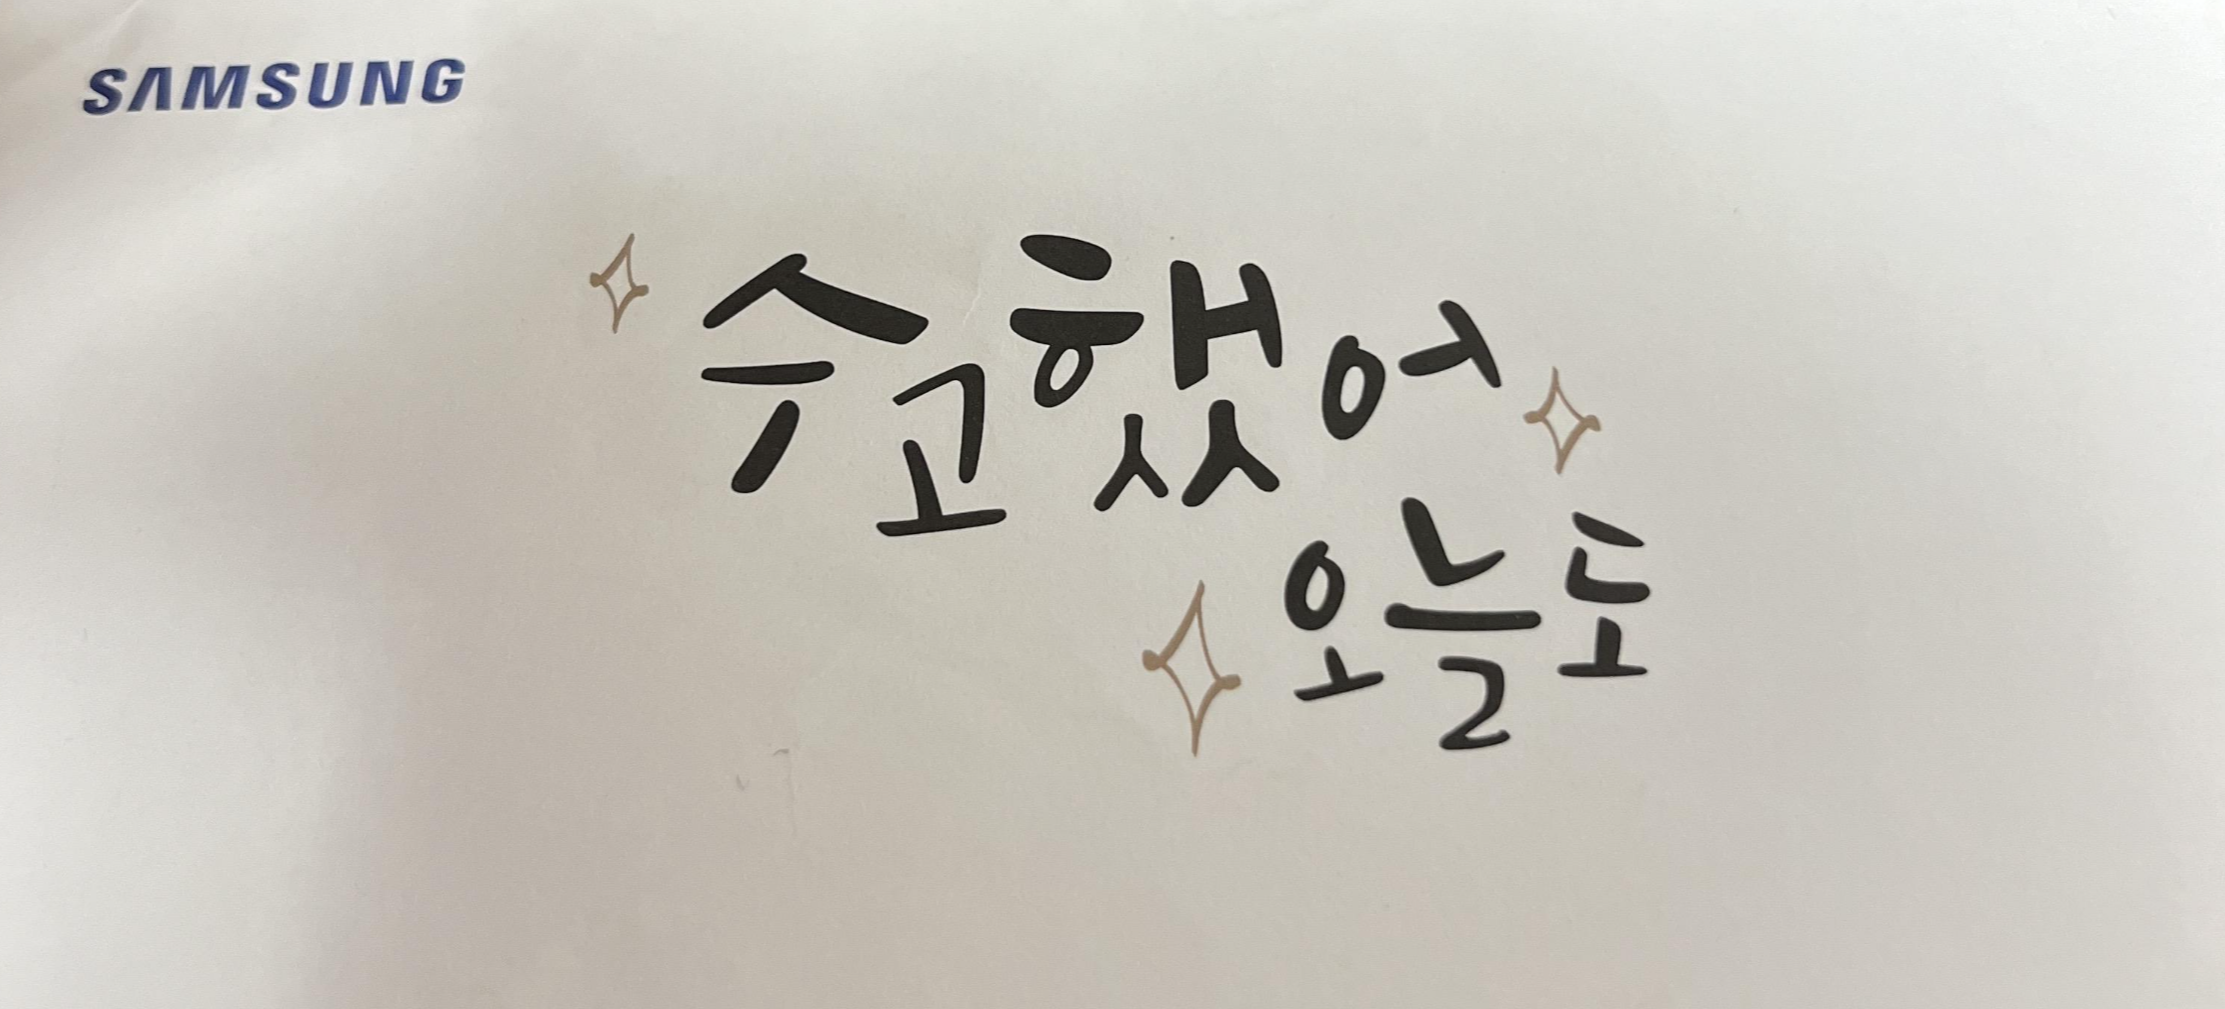 SAMSUNG
수고했어
오늘도